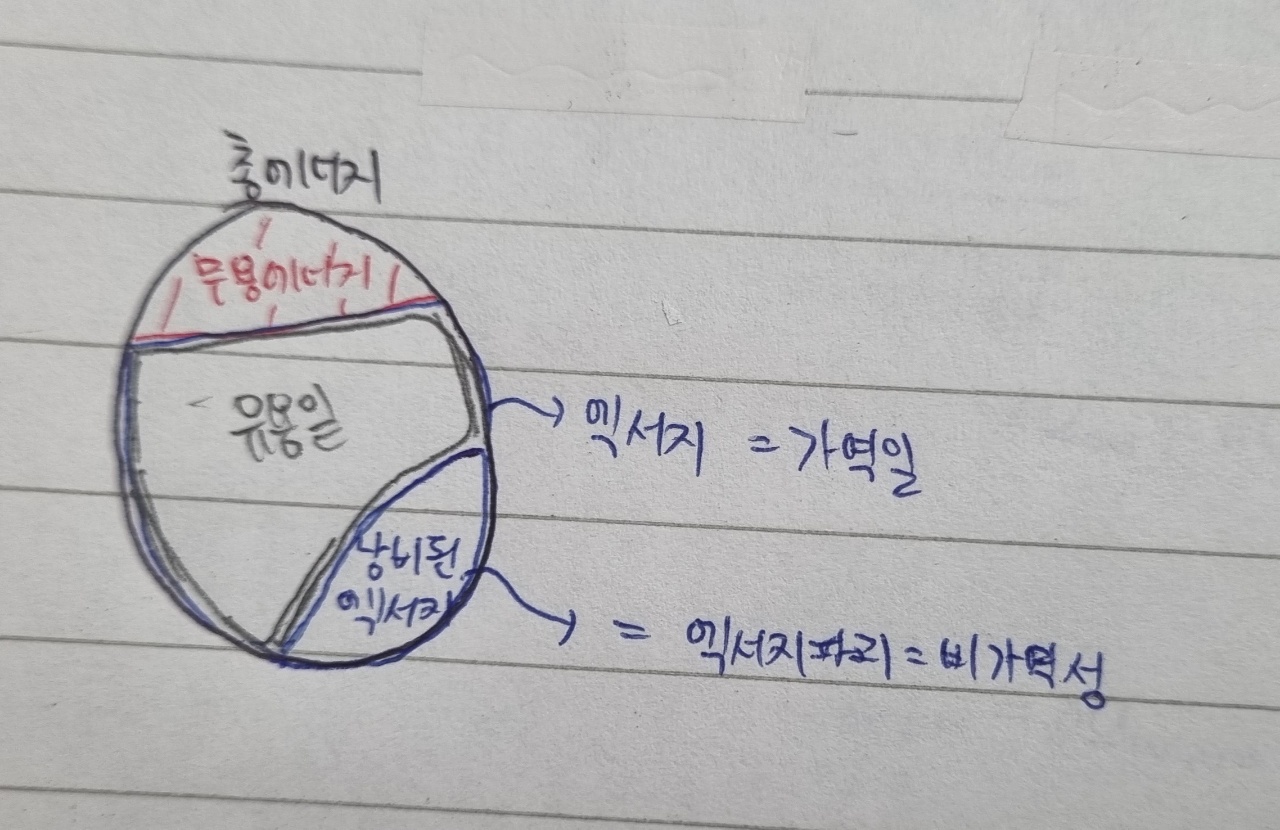 총에너지
무용에너지
유용일
엑서지 = 가역일
낭비된
엑서지
= 엑서지파괴 = 비가역성